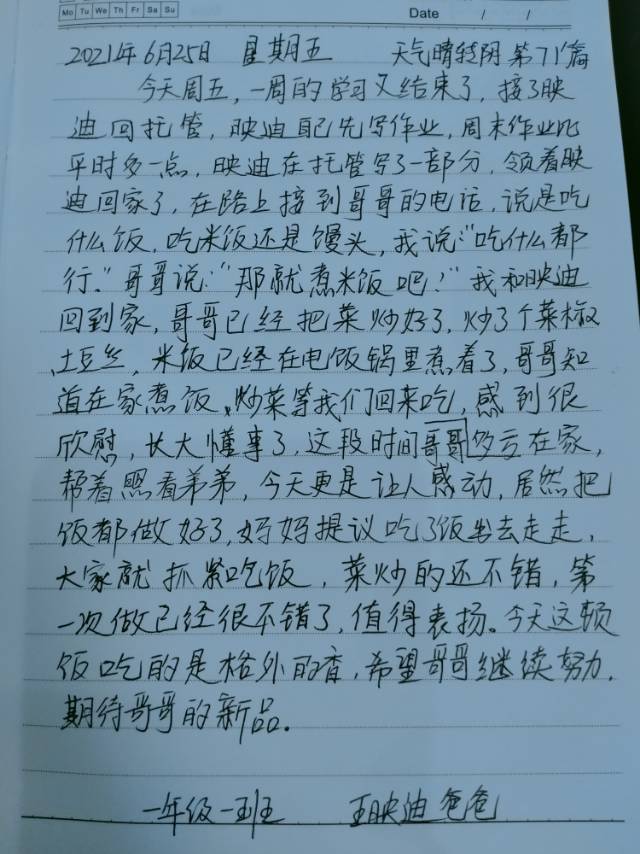 Mo Tu We Th Fr Sa Su
Date / /
2021年6月25日 星期五 天气晴转阴 第71篇
今天周五，一周的学习又结束了，接了映
迪回托管，映迪自己先写作业，周末作业比
平时多一点，映迪在托管写了一部分，领着映
迪回家了，在路上接到哥哥的电话，说是吃
什么饭，吃米饭还是馒头，我说：“吃什么都
行。”哥哥说：“那就煮米饭吧！”我和映迪
回到家，哥哥已经把菜炒好了，炒了个菜椒
土豆丝，米饭已经在电饭锅里煮着了，哥哥知
道在家煮饭，炒菜等我们回来吃，感到很
欣慰，长大懂事了，这段时间哥哥多亏在家，
帮着照看弟弟，今天更是让人感动，居然把
饭都做好了，妈妈提议吃了饭出去走走，
大家就抓紧吃饭，菜炒的还不错，第
一次做已经很不错了，值得表扬。今天这顿
饭吃的是格外的香，希望哥哥继续努力，
期待哥哥的新品。
一年级一班 王映迪爸爸